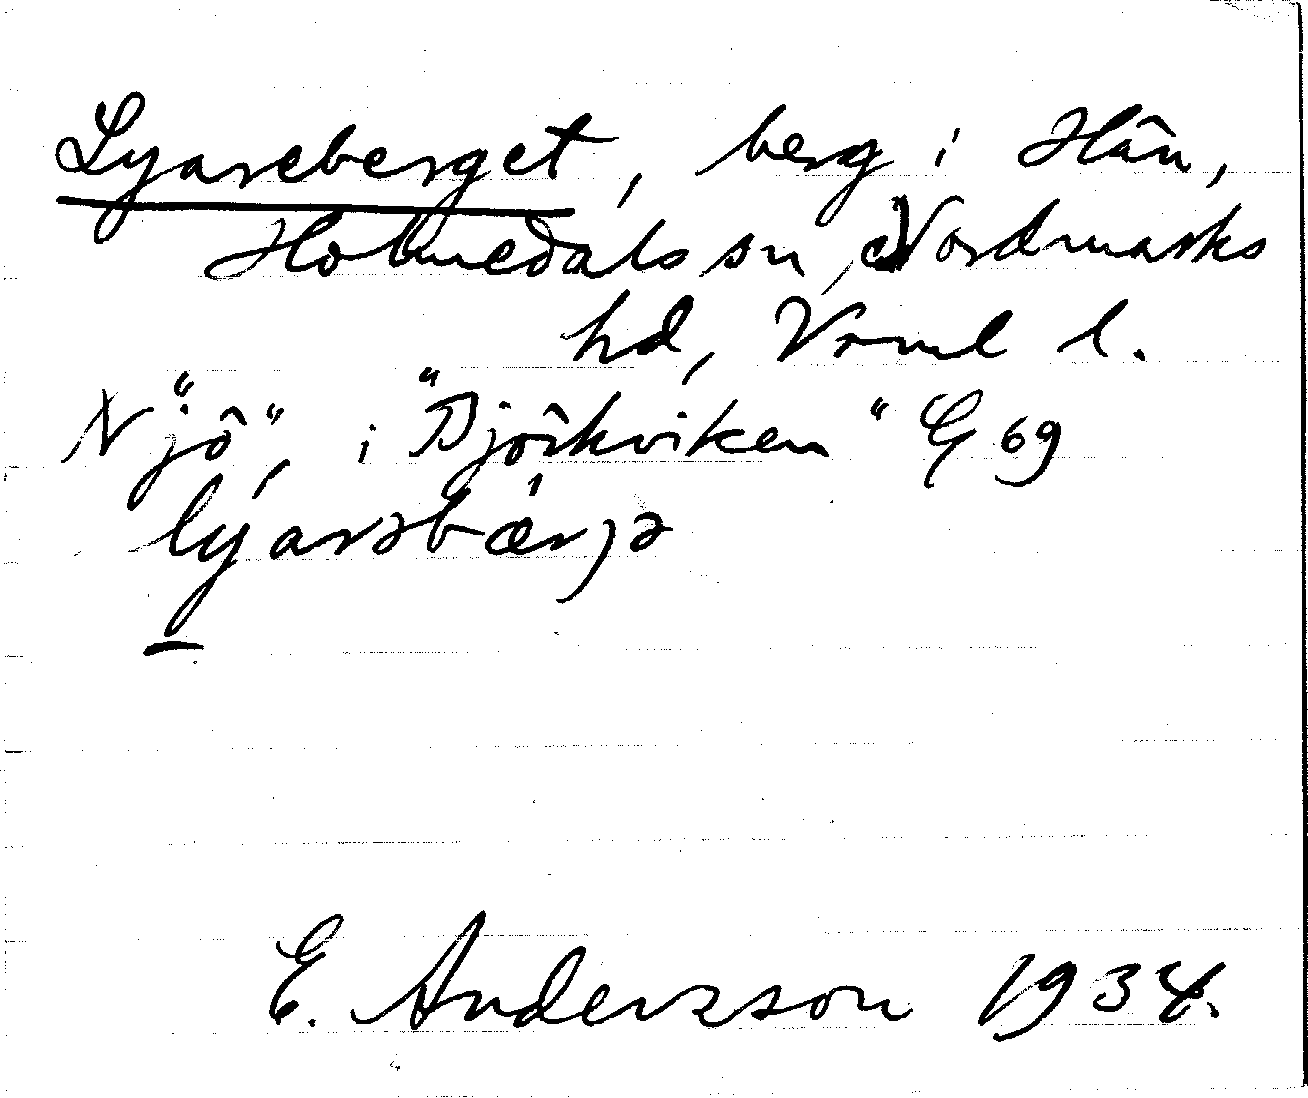 Lyareberget, berg i Hån,
Holmedals sn, Nordmarks
hd, Vrml l.
N "jö", i "Björkviken" G 69
lyarəbærjə
E. Andersson 1934.